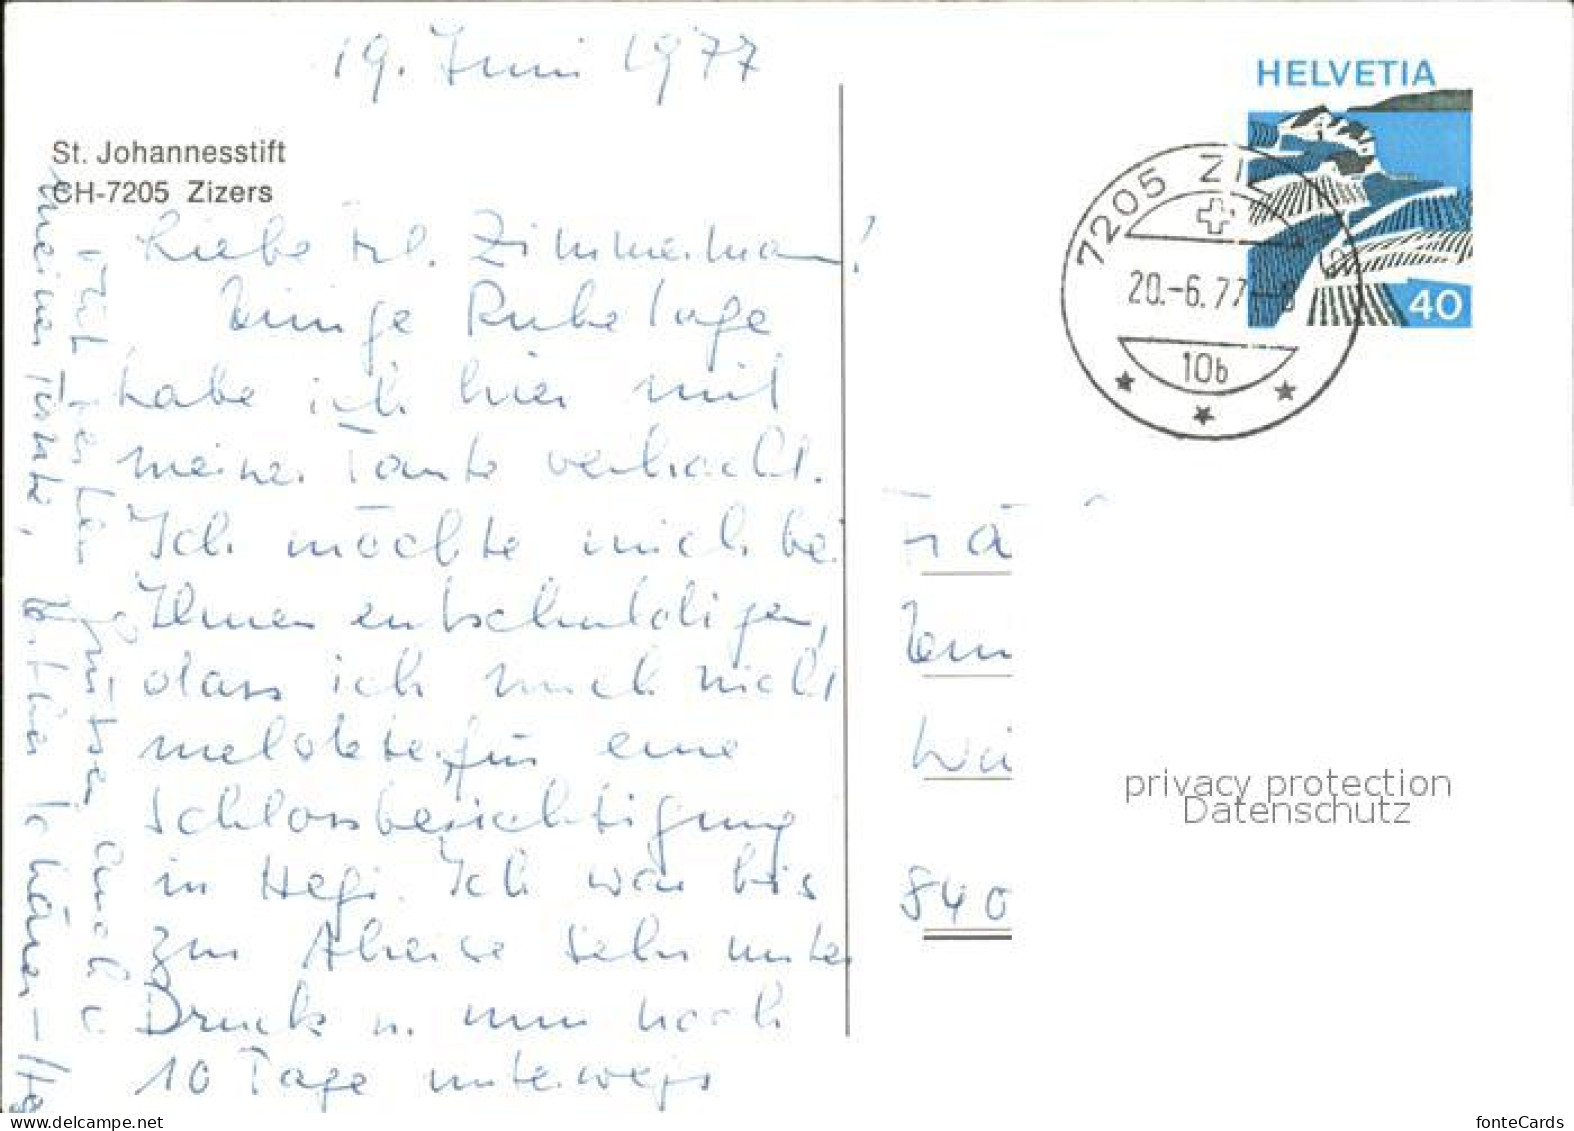 19. Juni 1977
St. Johannesstift
CH-7205 Zizers
Liebe Frl. Zimmermann!
Einige Ruhetage
habe ich hier mit
meiner Tante verbracht.
Ich möchte mich bei
Ihnen entschuldigen,
dass ich mich nicht
meldete für eine
Schlossbesichtigung
in Hegi. Ich war bis
zur Abreise sehr unter
Druck u. nun noch
10 Tage unterwegs
Mit herzl. Grüssen auch v.
meiner Tante,
HELVETIA
40
7205 ZI
20.-6.77-8
10b
Frä
Win
840
privacy protection
Datenschutz
delcampe.net
fonteCards